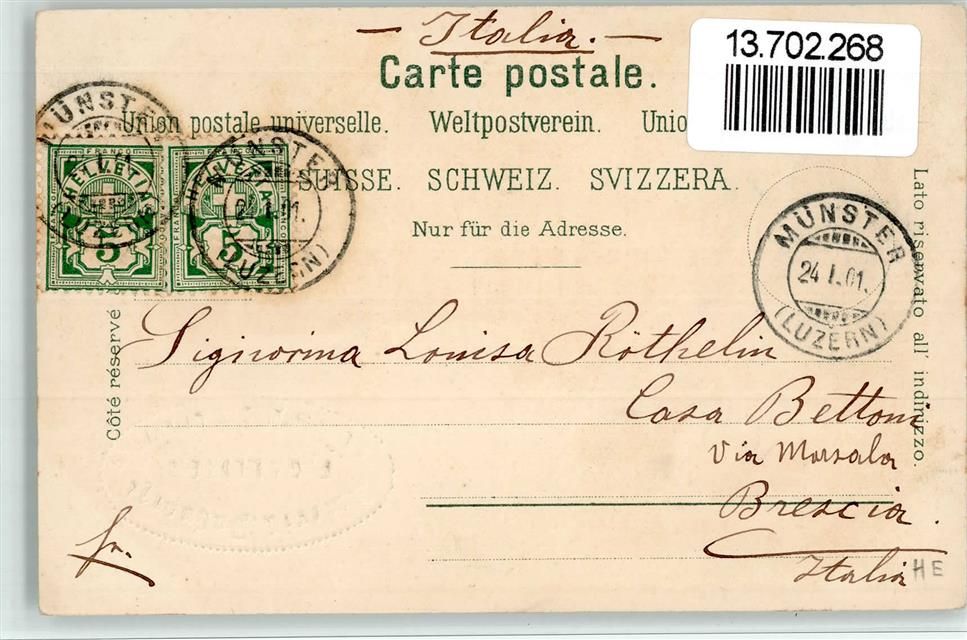 — Italia. —
13.702.268
Carte postale.
Union postale universelle. Weltpostverein. Unio
SUISSE. SCHWEIZ. SVIZZERA.
Nur für die Adresse.
MÜNSTER
(LUZERN)
FRANCO
HELVETIA
5
MÜNSTER
(LUZERN)
FRANCO
HELVETIA
5
MÜNSTER
24 I.01.
(LUZERN)
Côté réservé
Lato riservato all' indirizzo.
Signorina Louisa Röthelin
Casa Bettoni
Via Marsala
Brescia.
Italia
fr.
HE